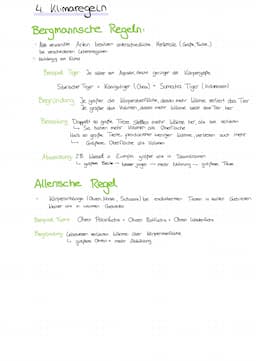 4. Klimaregeln
Bergmannsche Regeln:
• Nah verwandte Arten besitzen unterschiedliche Merkmale (Größe, Farbe..)
bei verschiedenen Lebensregionen
• abhängig von Klima
Beispiel Tiger: Je näher am Äquator, desto geringer die Körpergröße
Sibirischer Tiger > Königstiger (China) > Sumatra Tiger (Indonesien)
Begründung: Je größer die Körperoberfläche, desto mehr Wärme verliert das Tier
Je größer das Volumen, desto mehr Wärme stellt das Tier her
Doppelt so große Tiere stellen mehr Wärme her, als sie verlieren
↳ Sie haben mehr Volumen als Oberfläche
Halb so große Tiere produzieren weniger Wärme, verlieren auch mehr
↳ Größere Oberfläche als Volumen
größer als in
↳ größere = mehr Nahrung = größere Tiere
Allensche Regel
• Körperanhänge (Ohren, Schwanz) bei endothermen Tieren in kalten Gebieten
kleiner als in warmen Gebieten
Beispiel Füchse: Ohren Polarfuchs < Ohren Rotfuchs < Ohren Wüstenfuchs
Begründung: verlieren Wärme über Körperoberfläche
↳ größere Ohren = mehr Abkühlung